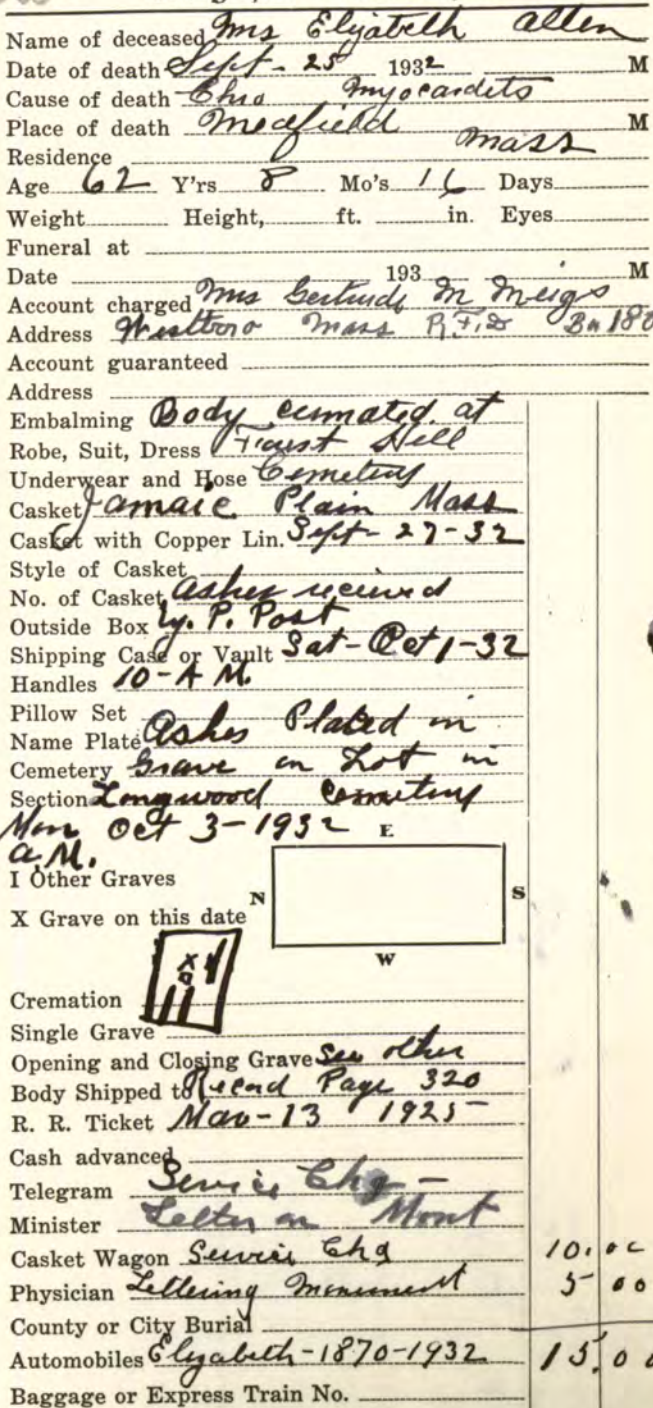 Name of deceased Mrs Elizabeth Allen
Date of death Sept - 25 1932 M
Cause of death Chro Myocardits
Place of death Medfield Mass M
Residence
Age 62 Y'rs 8 Mo's 16 Days
Weight Height, ft. in. Eyes
Funeral at
Date 193 M
Account charged Mrs Gertrude M Meigs
Address Westboro Mass R.F.D Bx 180
Account guaranteed
Address
Embalming Body cremated at
Robe, Suit, Dress Forest Hill
Underwear and Hose Cemetery
Casket Jamaic Plain Mass
Casket with Copper Lin. Sept - 27-32
Style of Casket
No. of Casket Ashes received
Outside Box By P. Post
Shipping Case or Vault Sat - Oct 1-32
Handles 10-A M.
Pillow Set
Name Plate Ashes Placed in
Cemetery Grave on Lot in
Section Longwood Cemetery
Mon Oct 3-1932
A.M.
E
I Other Graves
N S
X Grave on this date
W
X
Cremation
Single Grave
Opening and Closing Grave See other
Body Shipped to Record Page 320
R. R. Ticket Mar-13 1925
Cash advanced
Telegram Service Chg -
Minister Letter on Mont
Casket Wagon Service Chg 10.00
Physician Lettering Monument 5 00
County or City Burial
Automobiles Elizabeth-1870-1932 15.00
Baggage or Express Train No.